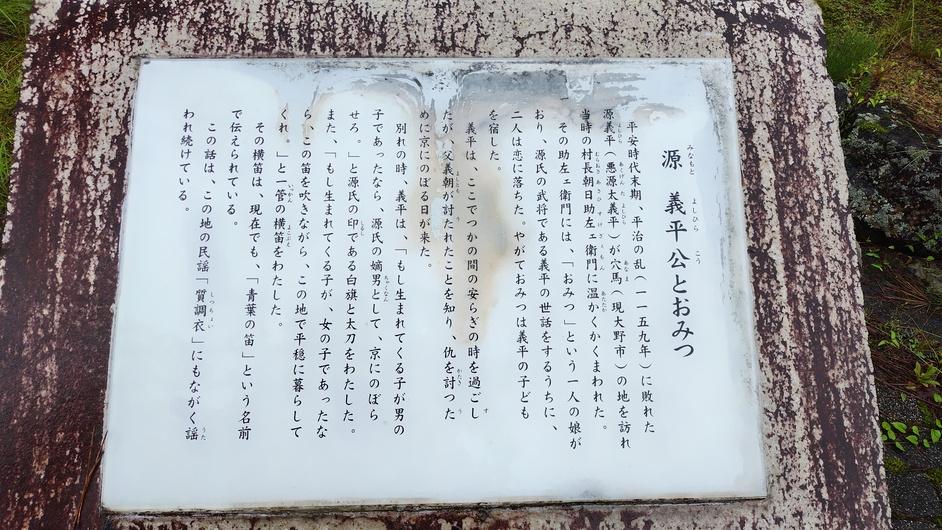 源 義平公とおみつ
平安時代末期、平治の乱(一一五九年)に敗れた
源義平(悪源太義平)が穴馬(現大野市)の地を訪れ
当時の村長朝日助左ェ衛門に温かくかくまわれた。
その助左ェ衛門には、「おみつ」という一人の娘が
おり、源氏の武将である義平の世話をするうちに、
二人は恋に落ちた。やがておみつは義平の子ども
を宿した。
義平は、ここでつかの間の安らぎの時を過ごし
たが、父義朝が討たれたことを知り、仇を討つた
めに京にのぼる日が来た。
別れの時、義平は、「もし生まれてくる子が男の
子であったなら、源氏の嫡男として、京にのぼら
せろ。」と源氏の印である白旗と太刀をわたした。
また、「もし生まれてくる子が、女の子であったな
ら、この笛を吹きながら、この地で平穏に暮らして
くれ。」と一管の横笛をわたした。
その横笛は、現在でも、「青葉の笛」という名前
で伝えられている。
この話は、この地の民謡「質調衣」にもながく謡
われ続けている。